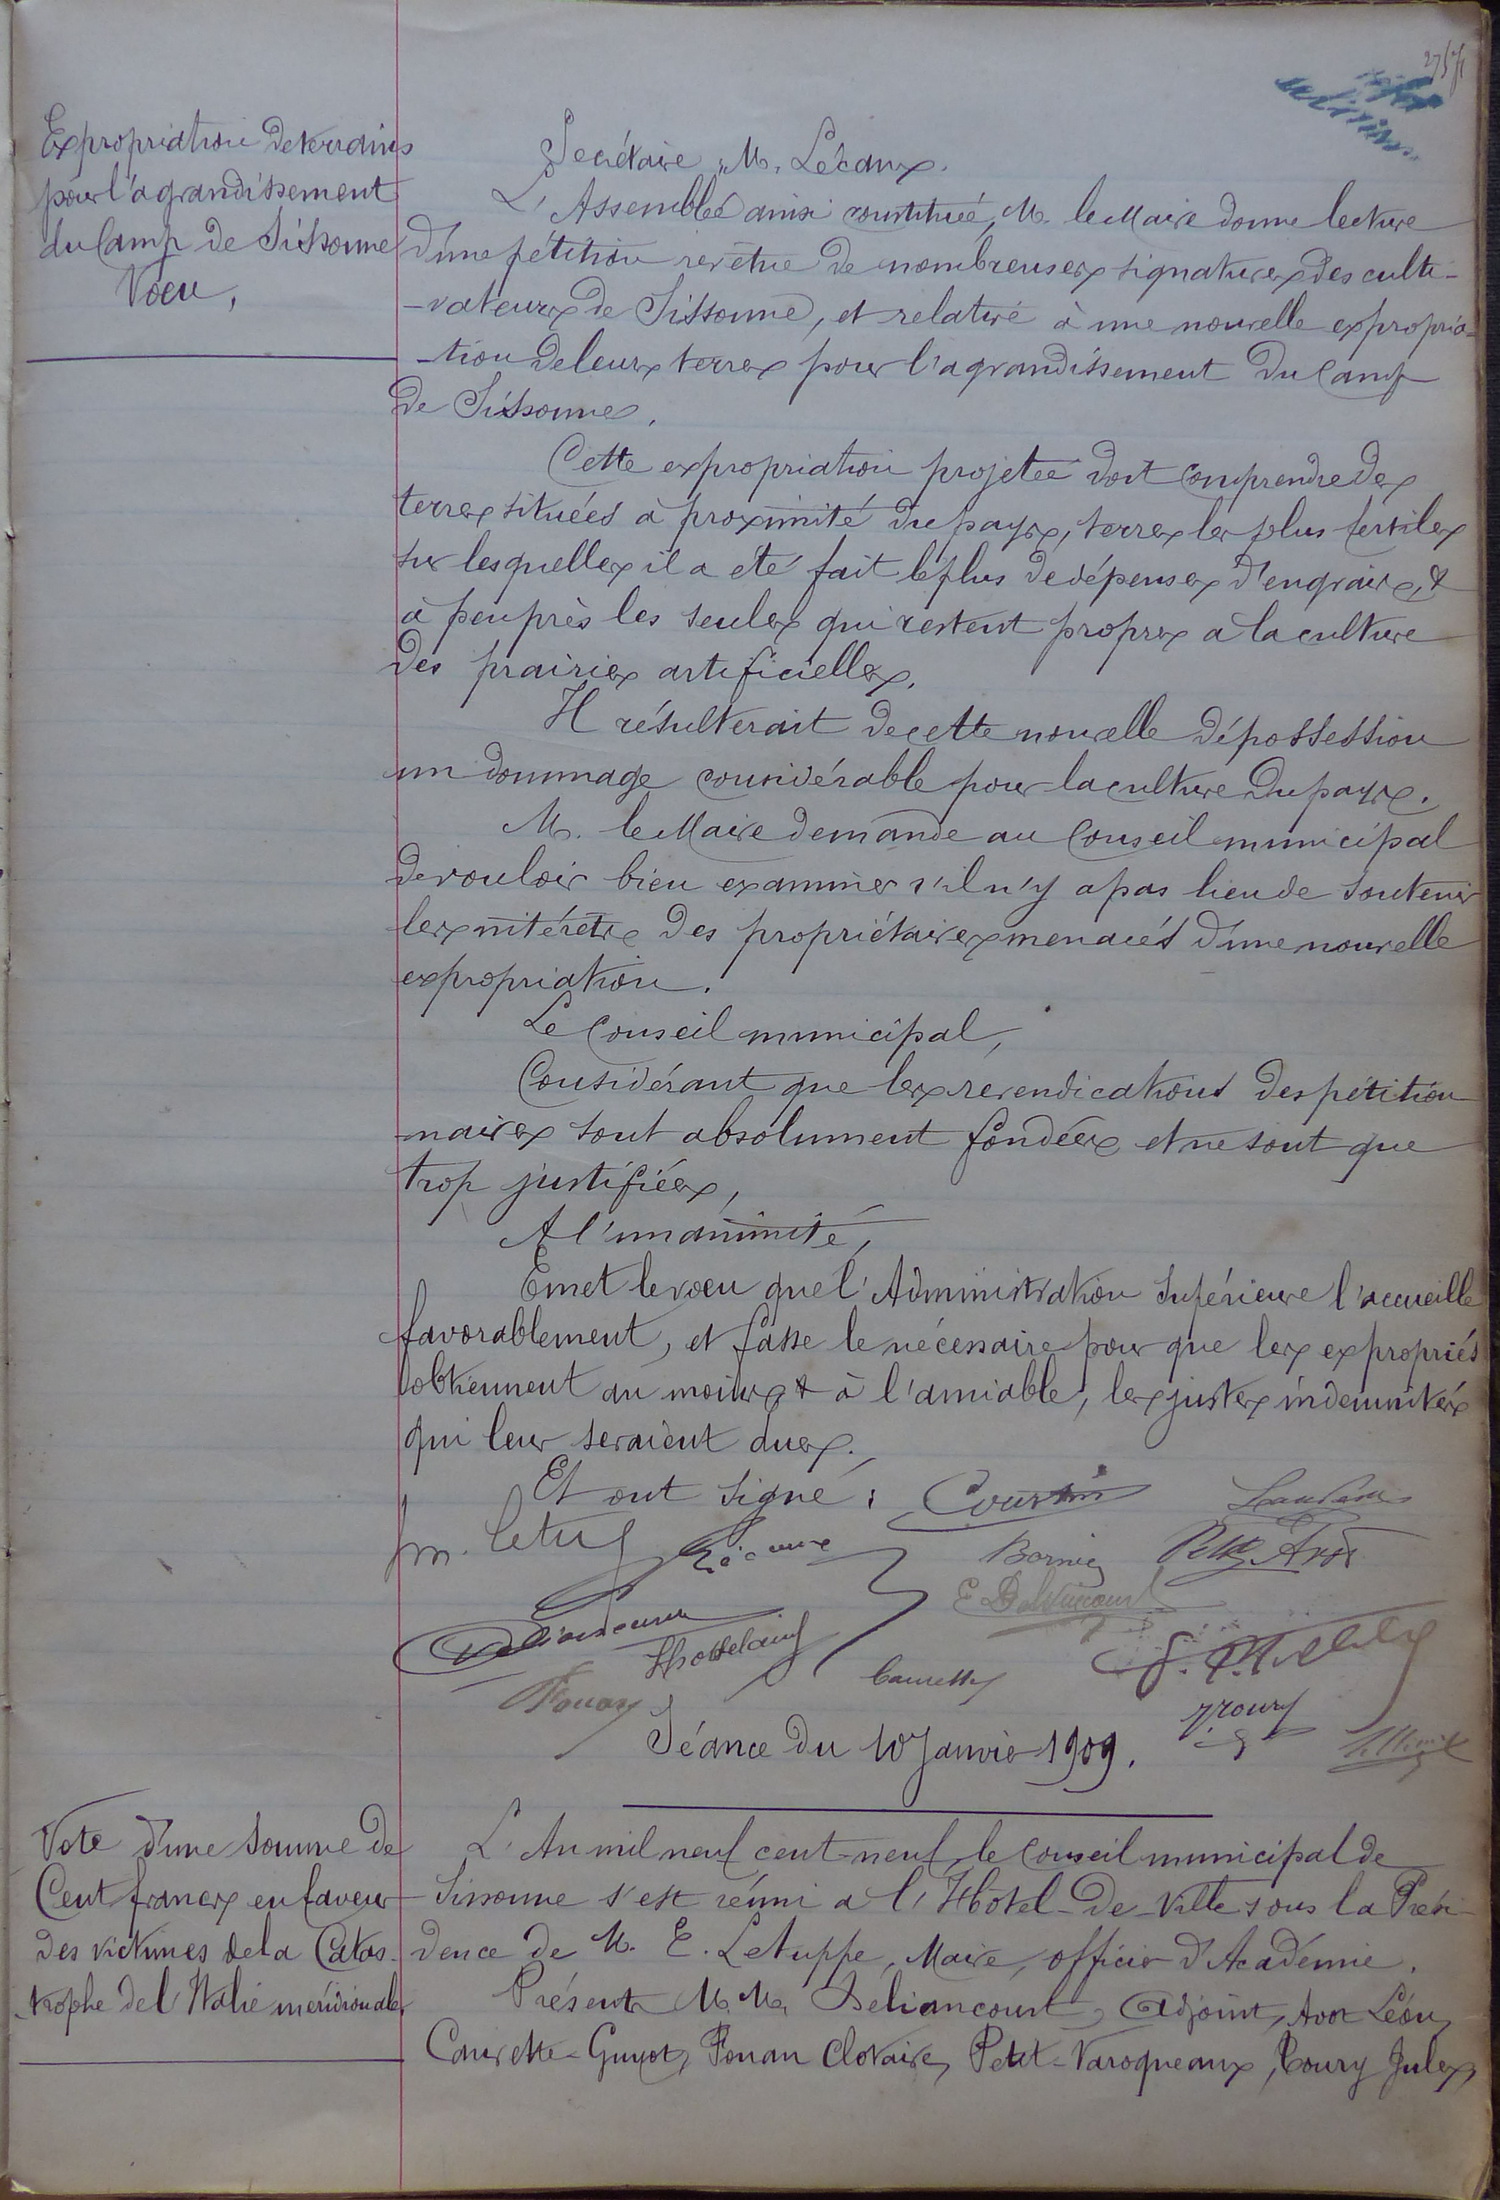 Expropriation de terrains
pour l'agrandissement
du Camp de Sissonne
Voeu,
Secrétaire, M. Lécaux.
L'Assemblée ainsi constituée, M. le Maire donne lecture
d'une pétition revêtue de nombreuses signatures des culti-
-vateurs de Sissonne, et relative à une nouvelle expropria-
-tion de leurs terres pour l'agrandissement du Camp
de Sissonne.
Cette expropriation projetée doit comprendre des
terres situées à proximité du pays, terres les plus fertiles
sur lesquelles il a été fait le plus de dépenses d'engrais, &
à peu près les seules qui restent propres à la culture
des prairies artificielles.
Il résulterait de cette nouvelle dépossession
un dommage considérable pour la culture du pays.
M. le Maire demande au Conseil municipal
de vouloir bien examiner s'il n'y a pas lieu de soutenir
les intérêts des propriétaires menacés d'une nouvelle
expropriation.
Le Conseil municipal,
Considérant que les revendications des pétition
-naires sont absolument fondées et ne sont que
trop justifiées,
A l'unanimité,
Emet le voeu que l'Administration Supérieure l'accueille
favorablement, et fasse le nécessaire pour que les expropriés
obtiennent au moins & à l'amiable, les justes indemnités
qui leur seraient dues.
Et ont signé :
Courtin
Lécaux
Bornie
Petit Avot
E. Deliancourt
Deliancourt
Caurette
Fouan
Toury
Séance du 10 Janvier 1909.
Vote d'une somme de
Cent francs en faveur
des victimes de la Catas-
-trophe de l'Italie méridionale
L'An mil neuf cent-neuf, le Conseil municipal de
Sissonne s'est réuni à l'Hôtel-de-Ville sous la Prési-
dence de M. E. Letuppe, Maire, officier d'Académie.
Présents M.M. Deliancourt, Adjoint, Avot Léon,
Caurette-Guyot, Fouan Clotaire, Petit-Varoqueaux, Toury Jules,